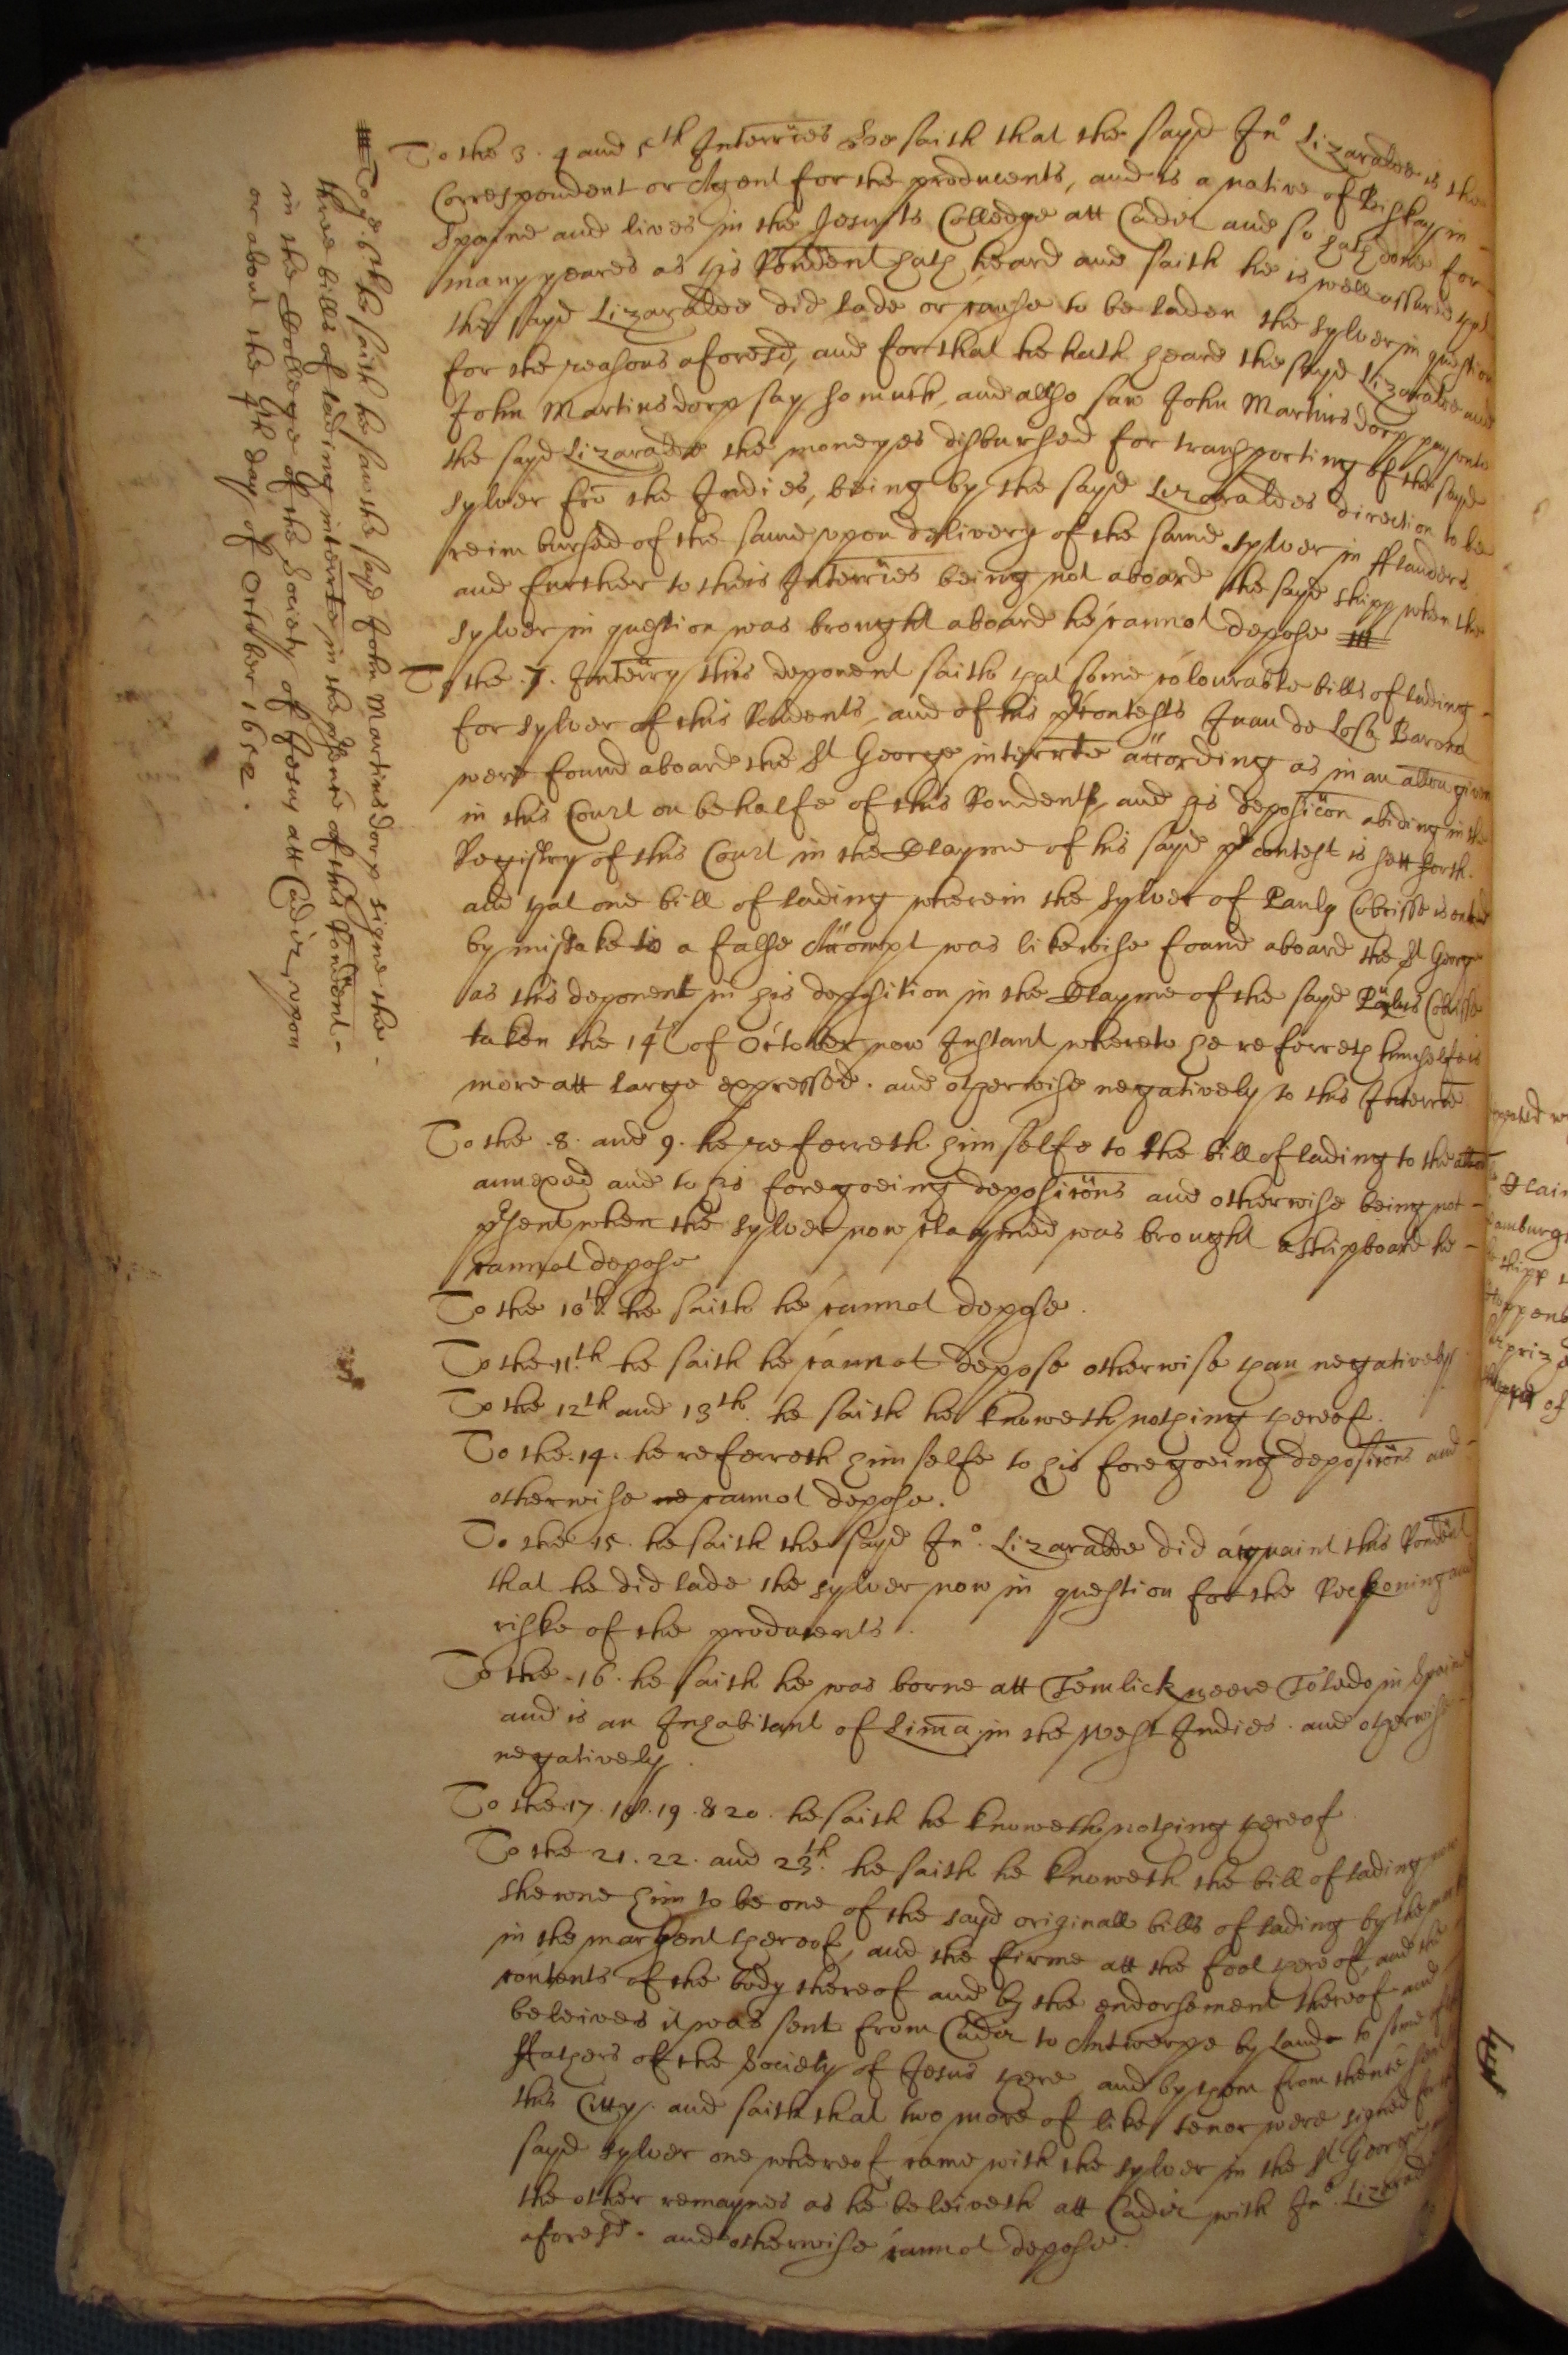 To the 3. 4 and 5th Interries hee saith that the sayd Jno Lizaralde is the
Correspondent or Agent for the producents, and is a native of Biskay in
Spaine and lives in the Jesuits Colledge att Cadiz and so hath done for
many yeares as his Rondent hath heard and saith he is well assured that
the sayd Lizaralde did lade or cause to be laden the sylver in question
for the reasons aforesd, and for that he hath heard the sayd Lizaralde and
John Martins dorp say so much, and also saw John Martins dorp pay unto
the sayd Lizaralde the moneyes disbursed for transporting of the sayd
sylver fro the Indies, being by the sayd Lizaraldes direction to be
reimbursed of the same upon delivery of the same sylver in fflanders
and further to theis Interries being not aboard the sayd shipp when the
sylver in question was brought aboard he cannot depose
To ye. 6. he saith he saw the sayd John Martins dorp signe the
three bills of lading interrte in the psence of this Rondent
in the Colledge of the Society of Jesus att Cadiz, upon
or about the 4th day of October 1652.
To the .7. Interry this deponent saith that some colourable bills of lading
for sylver of this Rondents, and of his precontests Juan de Barona
were found aboard the St George interrte according as in an allon given
in this Court on behalfe of this Rondent, and his deposicon abiding in the
Registry of this Court in the Clayme of his sayd precontest is sett forth.
and that one bill of lading wherein the sylver of Paulq Cobrisse is entred
by mistake to a false Accompt was likewise found aboard the St George
as this deponent in his deposition in the Clayme of the sayd Paulus Cobrisse
taken the 14th of October now Instant whereto he referreth himselfe is
more att large expressed. and otherwise negatively to this Interrie
To the .8. and 9. he referreth himselfe to the bill of lading to the allon
annexed and to his foregoeing deposicons and otherwise being not
psent when the sylver now claymed was brought a shipboard he
cannot depose
To the 10th. he saith he cannot depose.
To the 11th he saith he cannot depose otherwise than negatively
To the 12th and 13th. he saith he knoweth nothing thereof.
To the .14. he referreth himselfe to his foregoeing deposicons and
otherwise cannot depose.
To the .15. he saith the sayd Jno. Lizaralde did acquaint this Rondent
that he did lade the sylver now in question for the Reckoning and
riske of the producents.
To the .16. he saith he was borne att Temlick neere Toledo in Spaine
and is an Inhabitant of Lima in the West Indies. and otherwise
negatively.
To the .17. 18. 19. & 20. he saith he knoweth nothing thereof
To the 21. 22. and 23th. he saith he knoweth the bill of lading now
shewne him to be one of the sayd originall bills of lading by the mark
in the margent thereof, and the firme att the foot thereof, and the
contents of the body thereof and by the endorsement thereof and
beleives it was sent from Cadiz to Antwerpe by Land to some of the
ffathers of the Society of Jesus there, and by them from thence sent
this Citty. and saith that two more of like tenor were signed for the
sayd sylver one whereof came with the sylver in the St George
the other remaynes as he beleiveth att Cadiz with Jno. Lizaralde
aforesd. and otherwise cannot depose.